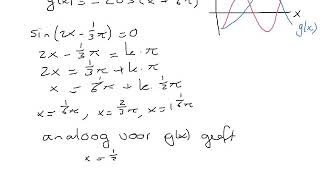 g(x) = -2cos(x + \frac{1}{6}π)
x
g(x)
sin(2x - \frac{1}{3}π) = 0
2x - \frac{1}{3}π = k·π
2x = \frac{1}{3}π + k·π
x = \frac{1}{6}π + k·\frac{1}{2}π
x = \frac{1}{6}π, x = \frac{2}{3}π, x = 1\frac{1}{6}π
analoog voor g(x) geeft
x = \frac{1}{3}